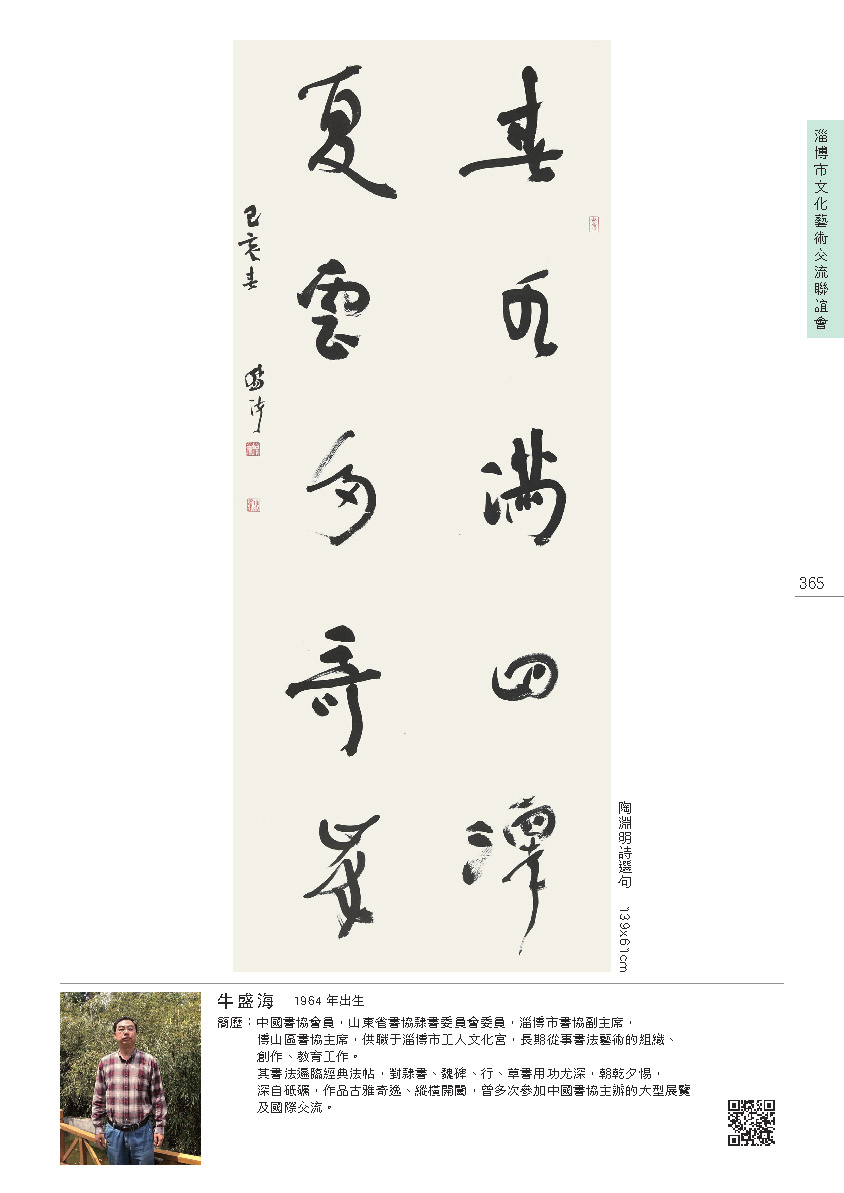 春水滿四澤
夏雲多奇峯
己亥春 盛海
淄博市文化藝術交流聯誼會
365
陶淵明詩選句 139x61cm
牛盛海 1964 年出生
簡歷：中國書協會員，山東省書協隸書委員會委員，淄博市書協副主席，
博山區書協主席，供職于淄博市工人文化宮，長期從事書法藝術的組織、
創作、教育工作。
其書法遍臨經典法帖，對隸書、魏碑、行、草書用功尤深，朝乾夕惕，
深自砥礪，作品古雅奇逸、縱橫開闔，曾多次參加中國書協主辦的大型展覽
及國際交流。